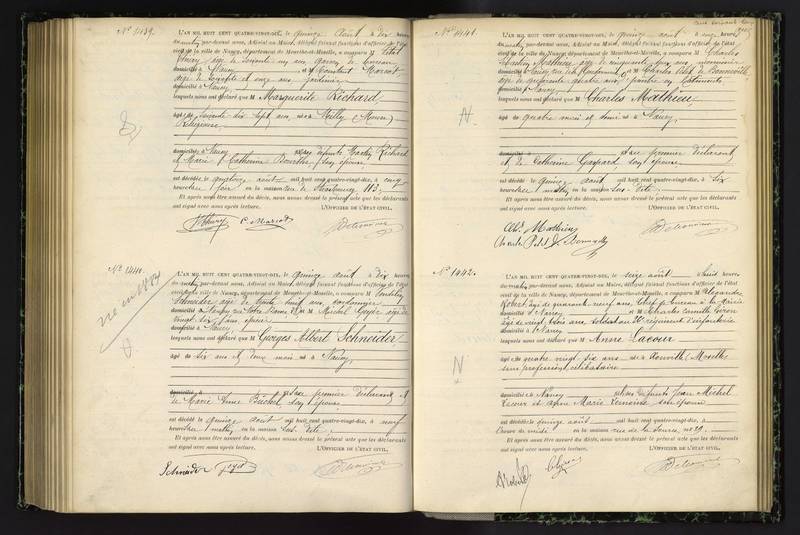 N° 1139.
L'AN MIL HUIT CENT QUATRE-VINGT-DIX, le quinze août à dix heures
du matin par-devant nous, Adjoint au Maire, délégué faisant fonctions d'officier de l'état
civil de la ville de Nancy, département de Meurthe-et-Moselle, a comparu M
âgé de soixante ans, garçon de bureau
domicilié à Nancy et M Constant Marcot
âgé de soixante et onze ans jardinier
domicilié à Nancy
lesquels nous ont déclaré que M Marguerite Richard,
âgé de soixante dix sept ans, né à Milly (Meuse)
Religieuse
domicilié à Nancy défunts Martin Richard
et Marie Catherine son épouse
est décédé le quatorze août mil huit cent quatre-vingt-dix, à cinq
heures du soir en la maison rue de Strasbourg 113,
Et après nous être assuré du décès, nous avons dressé le présent acte que les déclarants
ont signé avec nous après lecture. L'OFFICIER DE L'ÉTAT CIVIL,
N° 1140.
L'AN MIL HUIT CENT QUATRE-VINGT-DIX, le quinze août à dix heures
du matin par-devant nous, Adjoint au Maire, délégué faisant fonctions d'officier de l'état
civil de la ville de Nancy, département de Meurthe-et-Moselle, a comparu M
Schneider âgé de trente huit ans, cordonnier
domicilié à Nancy et M Michel
vingt six ans, épicier
domicilié à Nancy
lesquels nous ont déclaré que M Georges Albert Schneider,
né en 1884
âgé de six ans et deux mois né à Nancy,
domicilié à du premier déclarant et
de Marie son épouse
est décédé le quinze août mil huit cent quatre-vingt-dix, à neuf
heures du matin en la maison sus-dite,
Et après nous être assuré du décès, nous avons dressé le présent acte que les déclarants
ont signé avec nous après lecture. L'OFFICIER DE L'ÉTAT CIVIL,
Schneider
N° 1141.
L'AN MIL HUIT CENT QUATRE-VINGT-DIX, le quinze août à onze heures
du matin par-devant nous, Adjoint au Maire, délégué faisant fonctions d'officier de l'état
civil de la ville de Nancy, département de Meurthe-et-Moselle, a comparu M Charles
Mathieu, âgé de cinquante
domicilié à Nancy et M Charles Petit de Bonneville,
âgé de cinquante quatre ans, peintre en bâtiments
domicilié à Nancy
lesquels nous ont déclaré que M Charles Mathieu,
N.
âgé de quatre mois et demi né à Nancy,
domicilié à du premier déclarant,
et de Catherine Gaspard, son épouse
est décédé le quinze août mil huit cent quatre-vingt-dix, à six
heures du matin en la maison sus-dite.
Et après nous être assuré du décès, nous avons dressé le présent acte que les déclarants
ont signé avec nous après lecture. L'OFFICIER DE L'ÉTAT CIVIL,
Ch. Mathieu
N° 1142.
L'AN MIL HUIT CENT QUATRE-VINGT-DIX, le seize août à huit heures
du matin par-devant nous, Adjoint au Maire, délégué faisant fonctions d'officier de l'état
civil de la ville de Nancy, département de Meurthe-et-Moselle, a comparu M Alexandre
Robert, âgé de quarante neuf ans, Chef de bureau à la Mairie
domicilié à Nancy et M Charles Camille Giron
âgé de vingt trois ans, soldat au régiment d'infanterie
domicilié à Nancy
lesquels nous ont déclaré que M Anne Lacour
N
âgé de quatre vingt six ans né à (Moselle)
sans profession, célibataire
domicilié à Nancy défunts Jean Michel
Lacour et Marie Lemoine son épouse
est décédé le quinze août mil huit cent quatre-vingt-dix, à
heure de midi en la maison rue de la Source, n° 29.
Et après nous être assuré du décès, nous avons dressé le présent acte que les déclarants
ont signé avec nous après lecture. L'OFFICIER DE L'ÉTAT CIVIL,